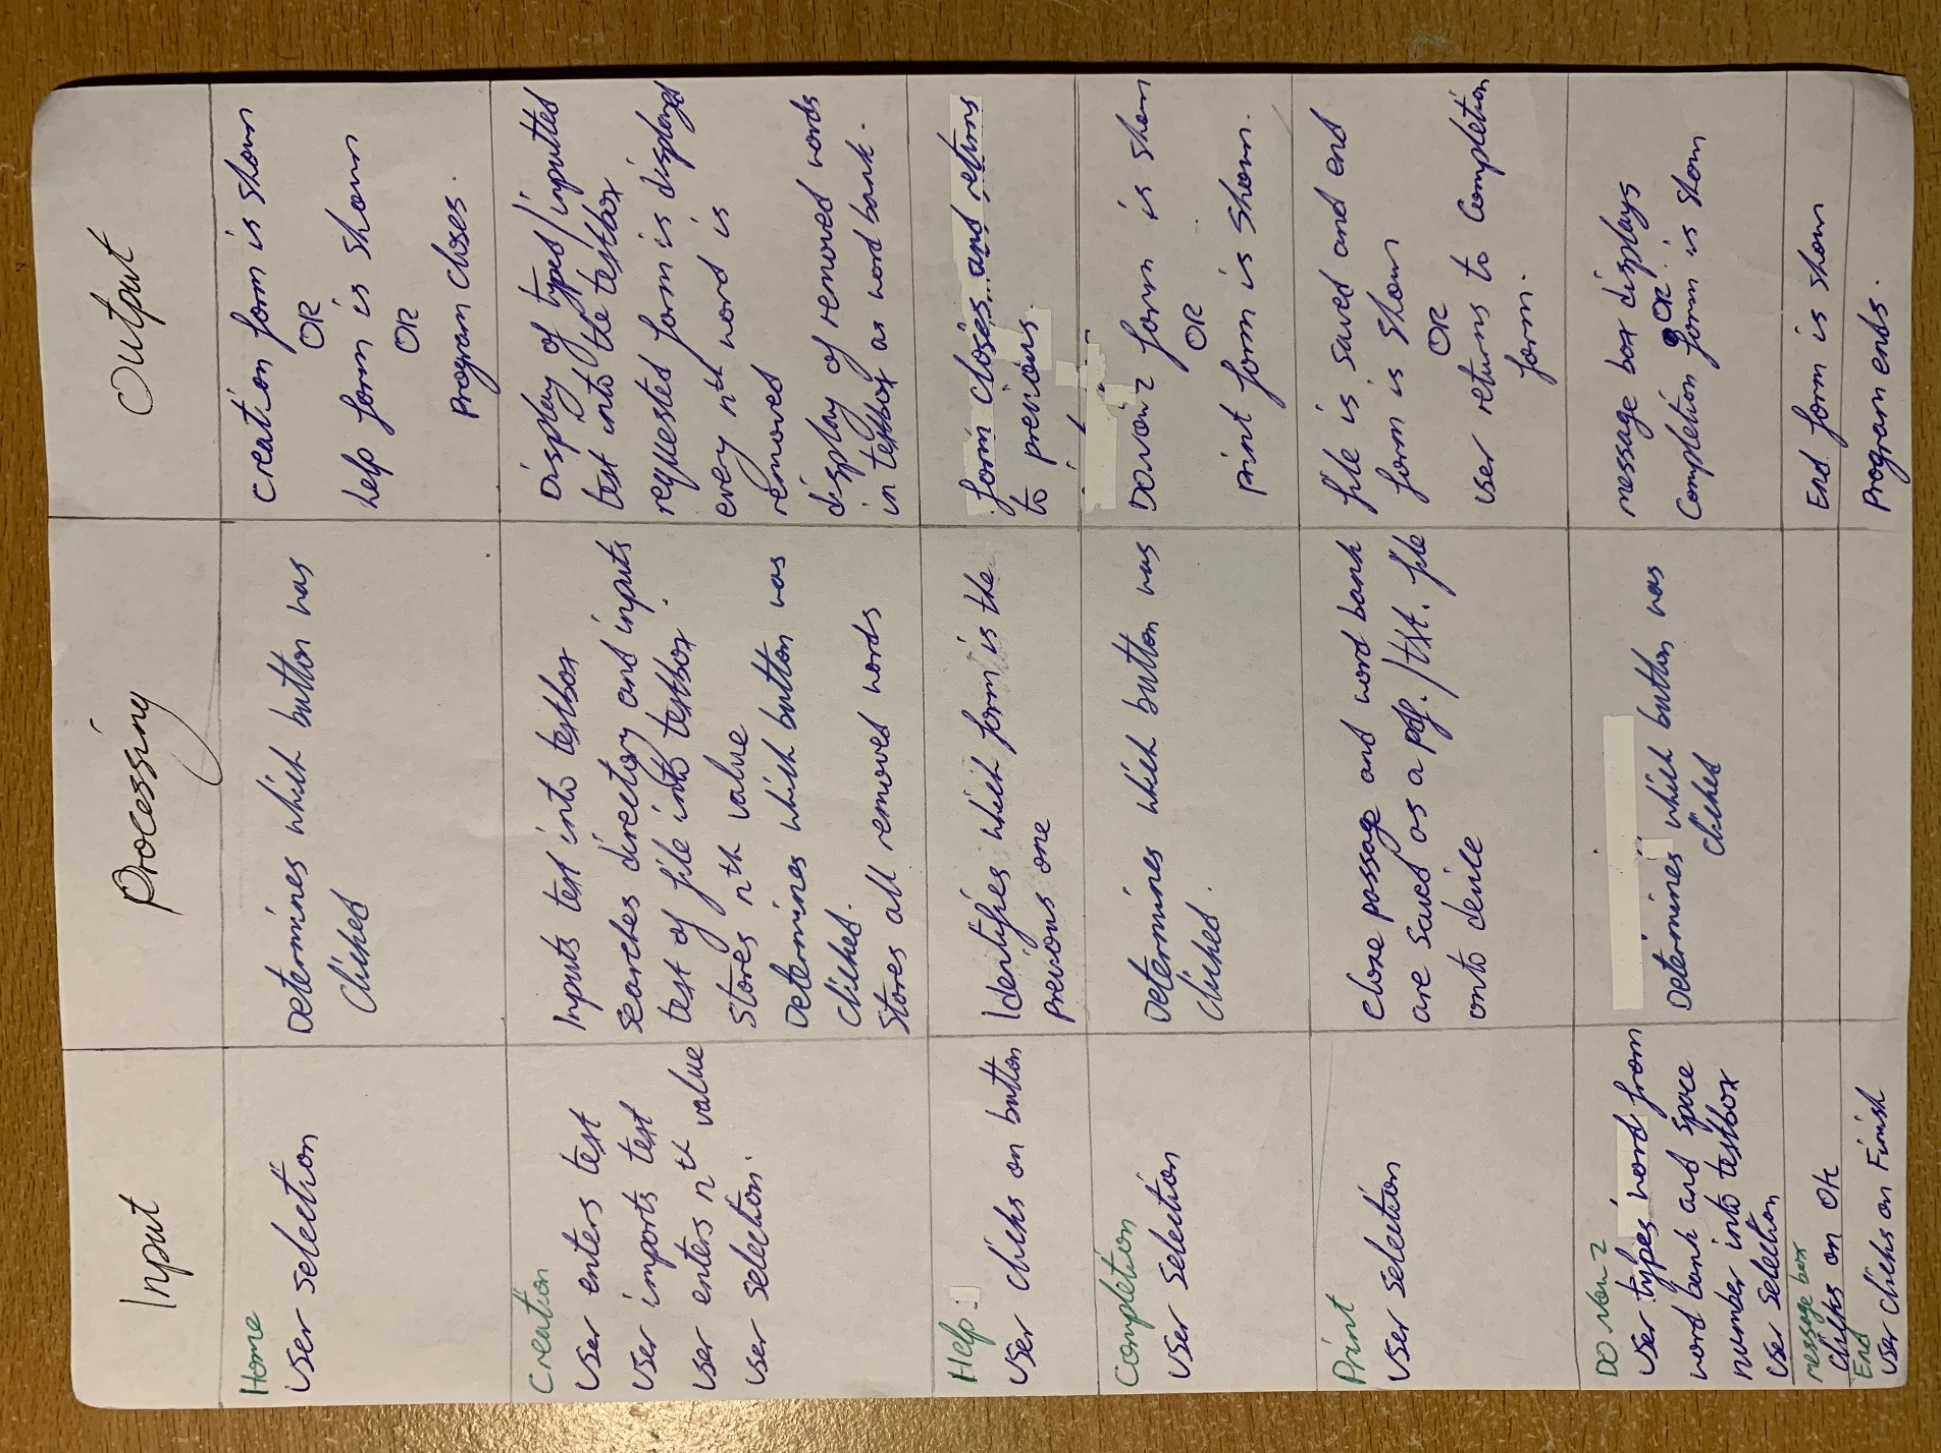 Input
Processing
Output
Home
User selection
Determines which button was
clicked
Creation form is shown
OR
help form is shown
OR
Program closes.
Creation
User enters text
User imports text
User enters nth value
User selection.
Inputs text into textbox
searches directory and inputs
text of file into textbox.
Stores nth value
Determines which button was
clicked.
Stores all removed words
Display of typed/inputted
text into the textbox
requested form is displayed
every nth word is
removed
display of removed words
in textbox as word bank.
Help
User clicks on button
Identifies which form is the
previous one
form closes and returns
to previous
Completion
User selection
Determines which button was
clicked.
DOnow2 form is shown
OR
Print form is shown.
Print
User selection
Cloze passage and word bank
are saved as a pdf./txt. file
onto device
file is saved and end
form is shown
OR
User returns to Completion
form.
DO now 2
User types word from
word bank and space
number into textbox
User selection
Determines which button was
clicked
message box displays
OR
Completion form is shown
message box
clicks on OK
End form is shown
End
User clicks on Finish
Program ends.